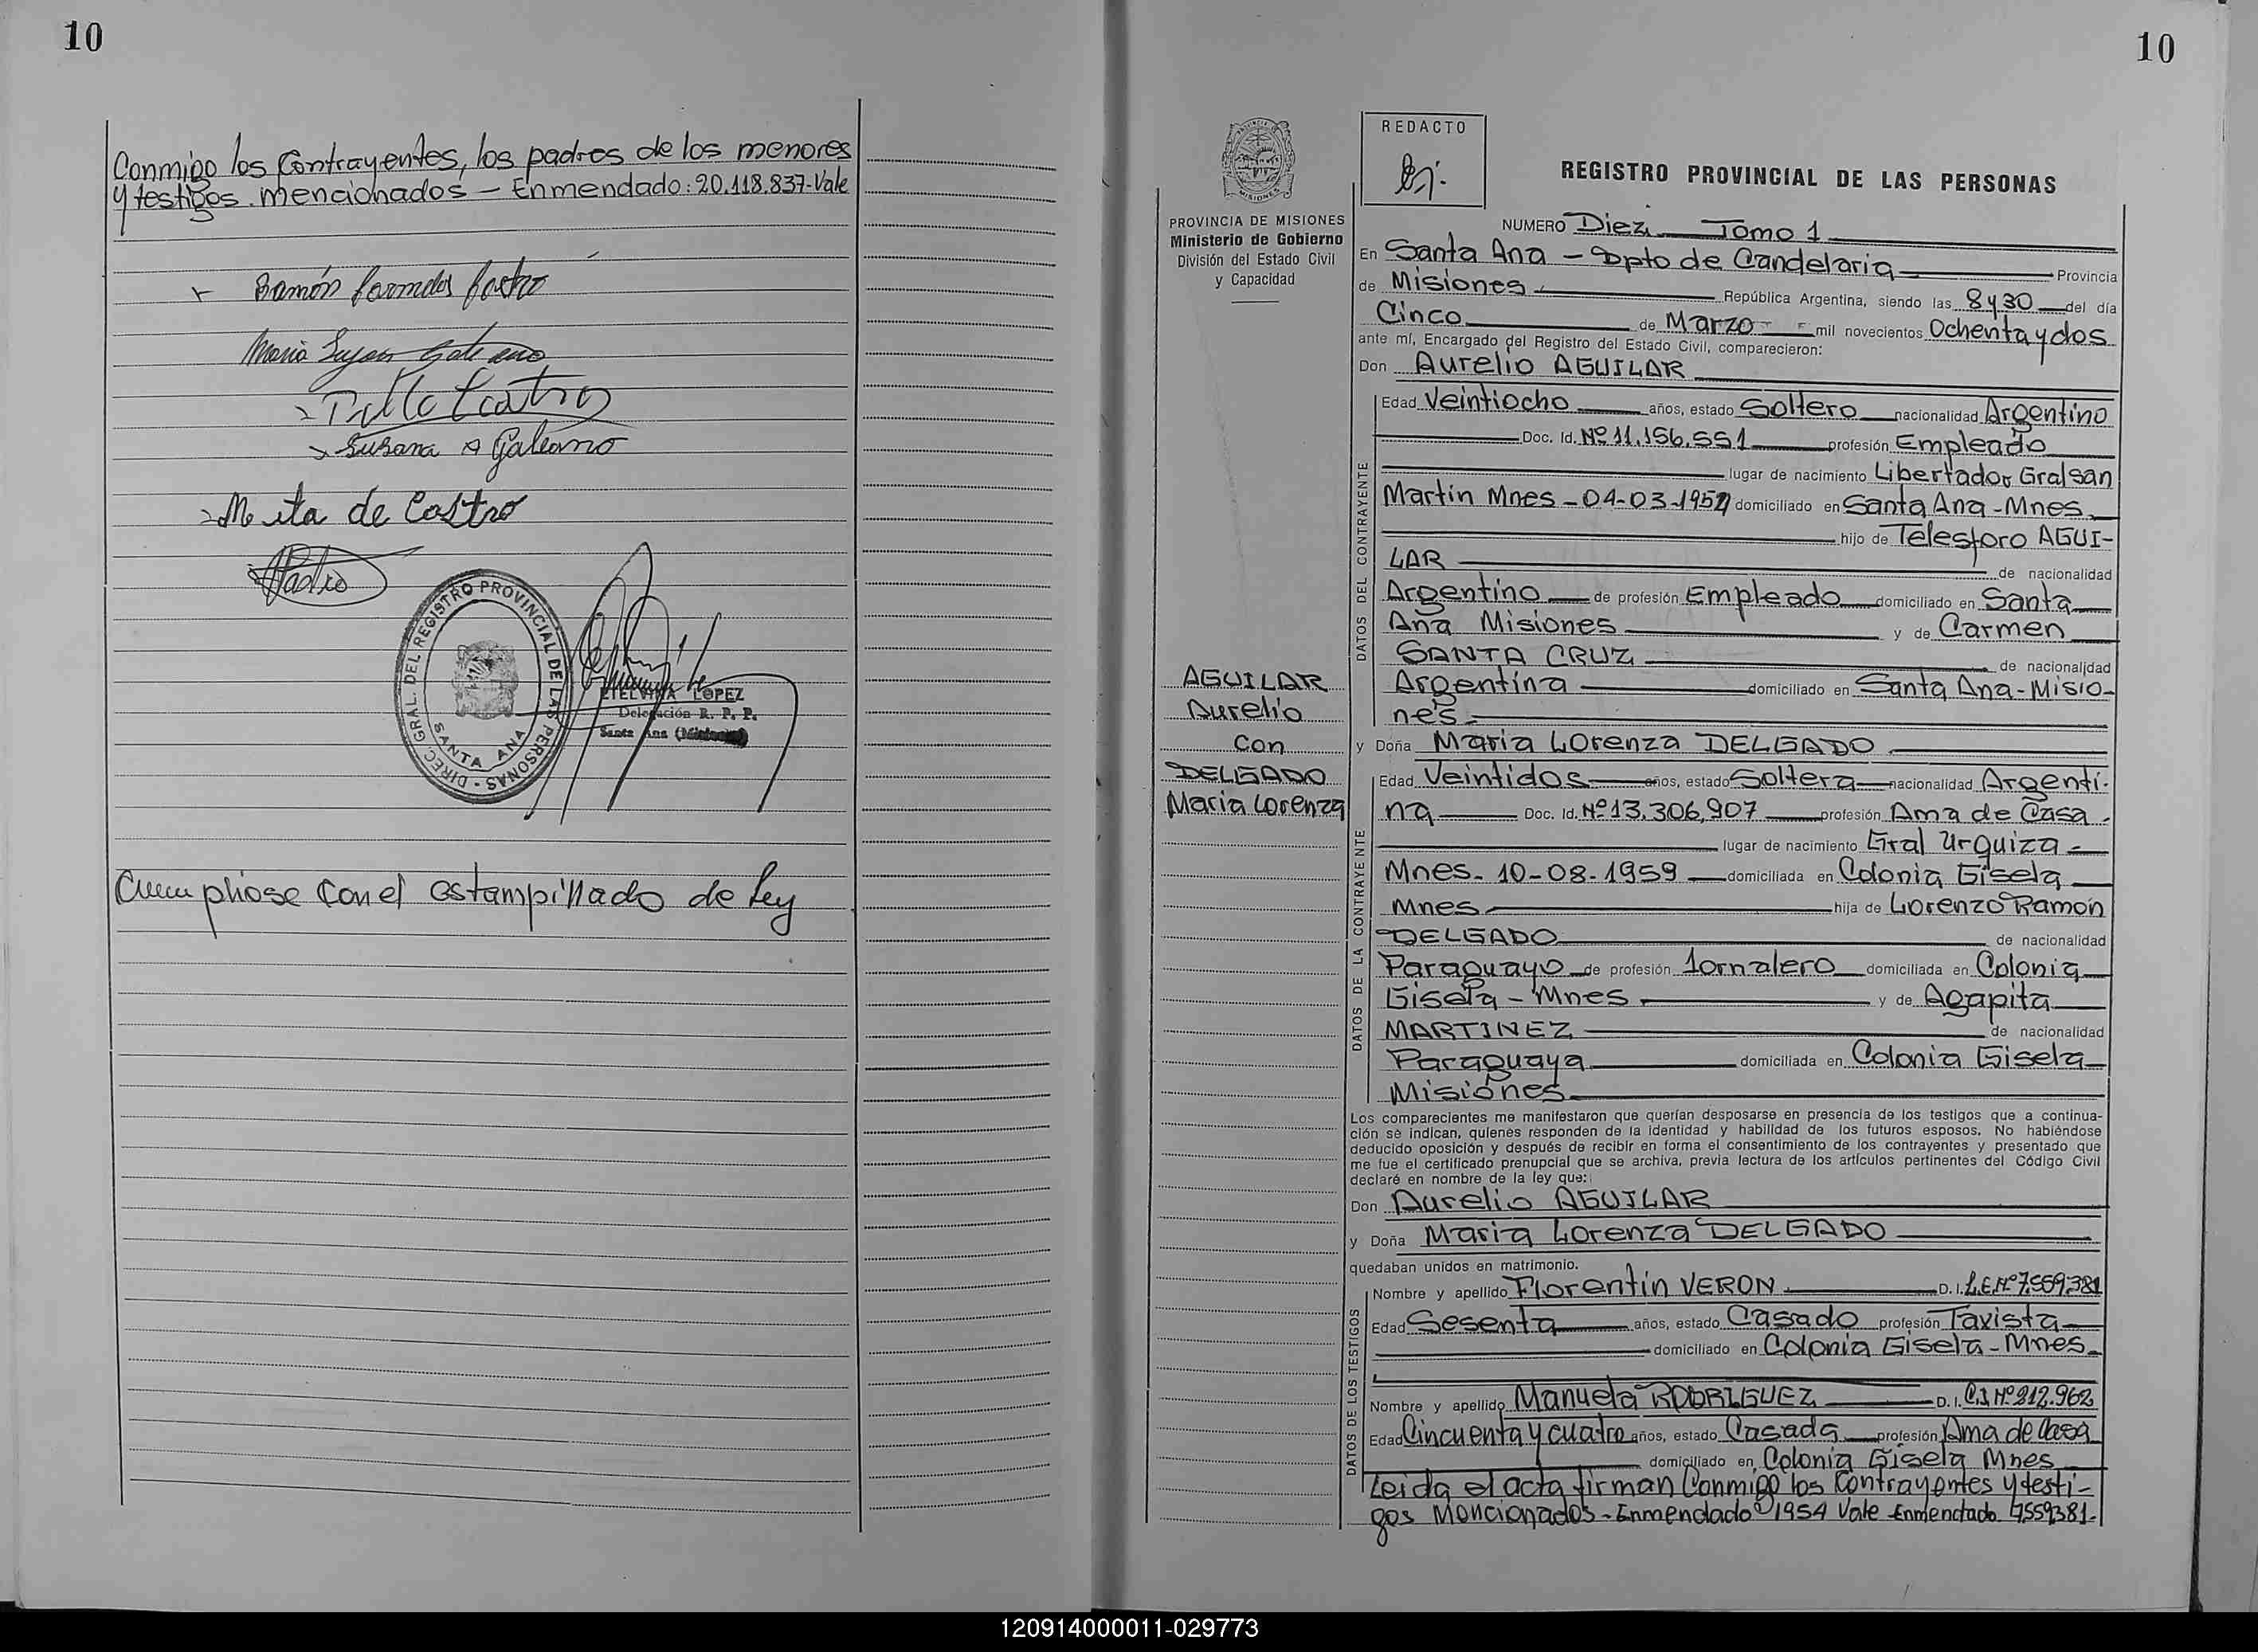 10
Conmigo los Contrayentes, los padres de los menores
y testigos mencionados — Enmendado: 20.118.837-Vale
Ramón
Susana A Galeano
de Castro
DIREC. GRAL. DEL REGISTRO PROVINCIAL DE LAS PERSONAS -
SANTA ANA
ETELVINA LOPEZ
Delegación R. P. P.
Santa Ana (Misiones)
Cumpliose con el estampillado de Ley
10
MISIONES
PROVINCIA DE MISIONES
Ministerio de Gobierno
División del Estado Civil
y Capacidad
AGUILAR
Aurelio
Con
DELGADO
Maria Lorenza
REDACTO
REGISTRO PROVINCIAL DE LAS PERSONAS
NUMERO Diez — Tomo 1
En Santa Ana — Dpto de Candelaria Provincia
de Misiones República Argentina, siendo las 8y30 del día
Cinco de Marzo mil novecientos Ochenta y dos
ante mí, Encargado del Registro del Estado Civil, comparecieron:
Don Aurelio AGUILAR
DATOS DEL CONTRAYENTE
Edad Veintiocho años, estado Soltero nacionalidad Argentino
Doc. Id. Nº 11.156.551 profesión Empleado
lugar de nacimiento Libertador Gral San
Martin Mnes - 04-03-1954 domiciliado en Santa Ana - Mnes.
hijo de Telesforo AGUI-
LAR de nacionalidad
Argentino de profesión Empleado domiciliado en Santa
Ana Misiones y de Carmen
SANTA CRUZ de nacionalidad
Argentina domiciliado en Santa Ana - Misio-
nes
y Doña Maria Lorenza DELGADO
DATOS DE LA CONTRAYENTE
Edad Veintidos años, estado Soltera nacionalidad Argenti-
na Doc. Id. Nº 13.306.907 profesión Ama de Casa
lugar de nacimiento Gral Urquiza
Mnes. 10-08-1959 domiciliada en Colonia Gisela
Mnes hija de Lorenzo Ramon
DELGADO de nacionalidad
Paraguayo de profesión Jornalero domiciliada en Colonia
Gisela - Mnes y de Agapita
MARTINEZ de nacionalidad
Paraguaya domiciliada en Colonia Gisela
Misiones
Los comparecientes me manifestaron que querían desposarse en presencia de los testigos que a continua-
ción se indican, quienes responden de la identidad y habilidad de los futuros esposos. No habiéndose
deducido oposición y después de recibir en forma el consentimiento de los contrayentes y presentado que
me fue el certificado prenupcial que se archiva, previa lectura de los artículos pertinentes del Código Civil
declaré en nombre de la ley que:
Don Aurelio AGUILAR
y Doña Maria Lorenza DELGADO
quedaban unidos en matrimonio.
DATOS DE LOS TESTIGOS
Nombre y apellido Florentin VERON D. I. L.E.Nº 7.559.381
Edad Sesenta años, estado Casado profesión Taxista
domiciliado en Colonia Gisela - Mnes
Nombre y apellido Manuela RODRIGUEZ D. I. C.I Nº 212.962
Edad Cincuenta y cuatro años, estado Casada profesión Ama de Casa
domiciliado en Colonia Gisela Mnes
Leida el acta firman Conmigo los Contrayentes y testi-
gos Mencionados - Enmendado 1954 Vale Enmendado 7559381-
120914000011-029773